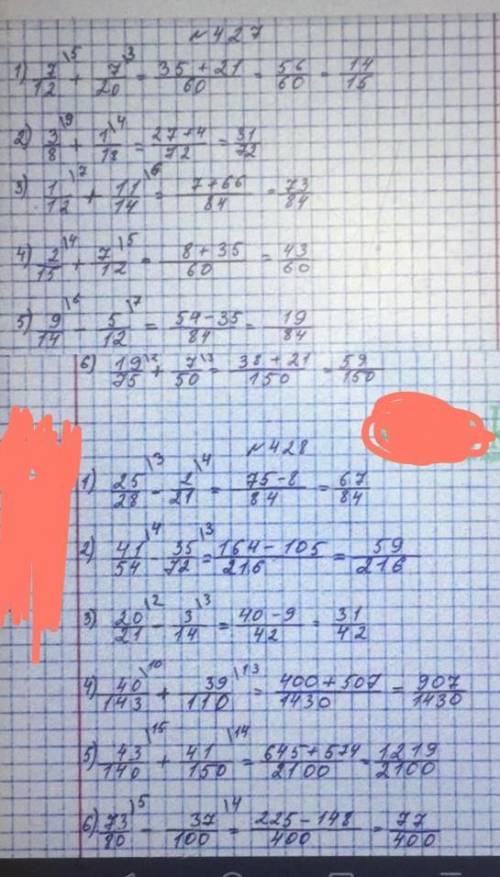 №427
1) 7/12 \5 + 7/20 \3 = 35+21/60 = 56/60 = 14/15
2) 3/8 \9 + 1/18 \4 = 27+4/72 = 31/72
3) 1/12 \7 + 11/14 \6 = 7+66/84 = 73/84
4) 2/15 \4 + 7/12 \5 = 8+35/60 = 43/60
5) 9/14 \6 - 5/12 \7 = 54-35/84 = 19/84
6) 19/75 \2 + 7/50 \3 = 38+21/150 = 59/150
№428
1) 25/28 \3 - 2/21 \4 = 75-8/84 = 67/84
2) 41/54 \4 - 35/72 \3 = 164-105/216 = 59/216
3) 20/21 \2 - 3/14 \3 = 40-9/42 = 31/42
4) 40/143 \10 + 39/110 \13 = 400+507/1430 = 907/1430
5) 43/140 \15 + 41/150 \14 = 645+574/2100 = 1219/2100
6) 73/80 \5 - 37/100 \4 = 225-148/400 = 77/400